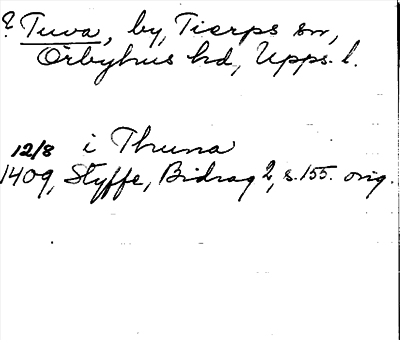 ? Tuva, by, Tierps sn,
Örbyhus hd, Upps. l.
12/8 i Thuna
1409, Styffe, Bidrag 2, s. 155. orig.